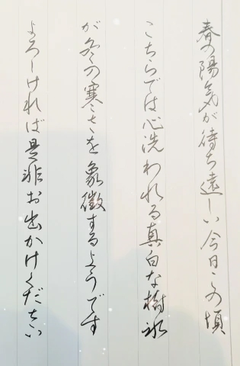 春の陽気が待ち遠しい今日この頃
こちらでは心洗われる真白な樹氷
が冬の寒さを象徴するようです
よろしければ是非お出かけください